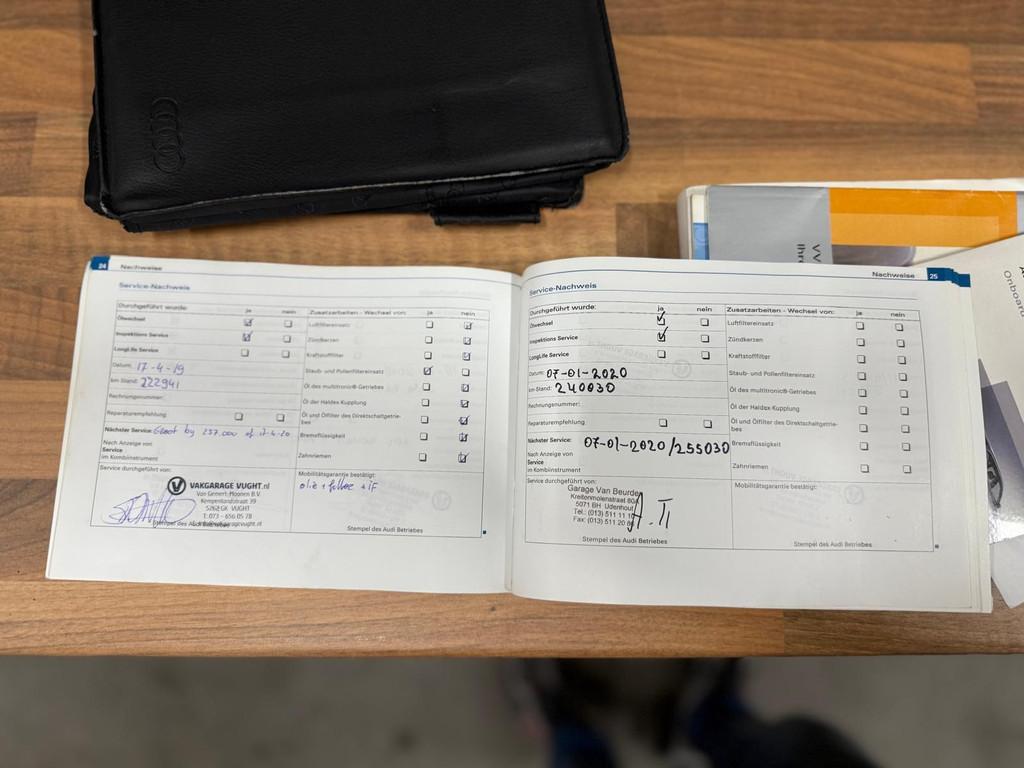 24 Nachweise
Service-Nachweis
Durchgeführt wurde: ja nein
Ölwechsel
Inspektions Service
LongLife Service
Datum: 17-4-19
km-Stand: 222941
Rechnungsnummer:
Reparaturempfehlung
Nächster Service: Groot by 237.000 of 17-4-20
Nach Anzeige von
Service
im Kombiinstrument
Service durchgeführt von:
VAKGARAGE VUGHT.nl
Van Gemert-Moonen B.V.
Kempenlandstraat 39
5262 GK VUGHT
T: 073 - 656 05 78
Stempel des Audi Betriebes
Zusatzarbeiten - Wechsel von: ja nein
Luftfiltereinsatz
Zündkerzen
Kraftstofffilter
Staub- und Pollenfiltereinsatz
Öl des multitronic®-Getriebes
Öl der Haldex Kupplung
Öl und Ölfilter des Direktschaltgetrie-
bes
Bremsflüssigkeit
Zahnriemen
Mobilitätsgarantie bestätigt:
olie + filter + iF
Stempel des Audi Betriebes
Nachweise 25
Service-Nachweis
Durchgeführt wurde: ja nein
Ölwechsel
Inspektions Service
LongLife Service
Datum: 07-01-2020
km-Stand: 240030
Rechnungsnummer:
Reparaturempfehlung
Nächster Service: 07-01-2020/255030
Nach Anzeige von
Service
im Kombiinstrument
Service durchgeführt von:
Garage Van Beurden
Kreitenmolenstraat 80
5071 BH Udenhout
Tel.: (013) 511 11
Fax: (013) 511 20
Stempel des Audi Betriebes
Zusatzarbeiten - Wechsel von: ja nein
Luftfiltereinsatz
Zündkerzen
Kraftstofffilter
Staub- und Pollenfiltereinsatz
Öl des multitronic®-Getriebes
Öl der Haldex Kupplung
Öl und Ölfilter des Direktschaltgetrie-
bes
Bremsflüssigkeit
Zahnriemen
Mobilitätsgarantie bestätigt:
Stempel des Audi Betriebes